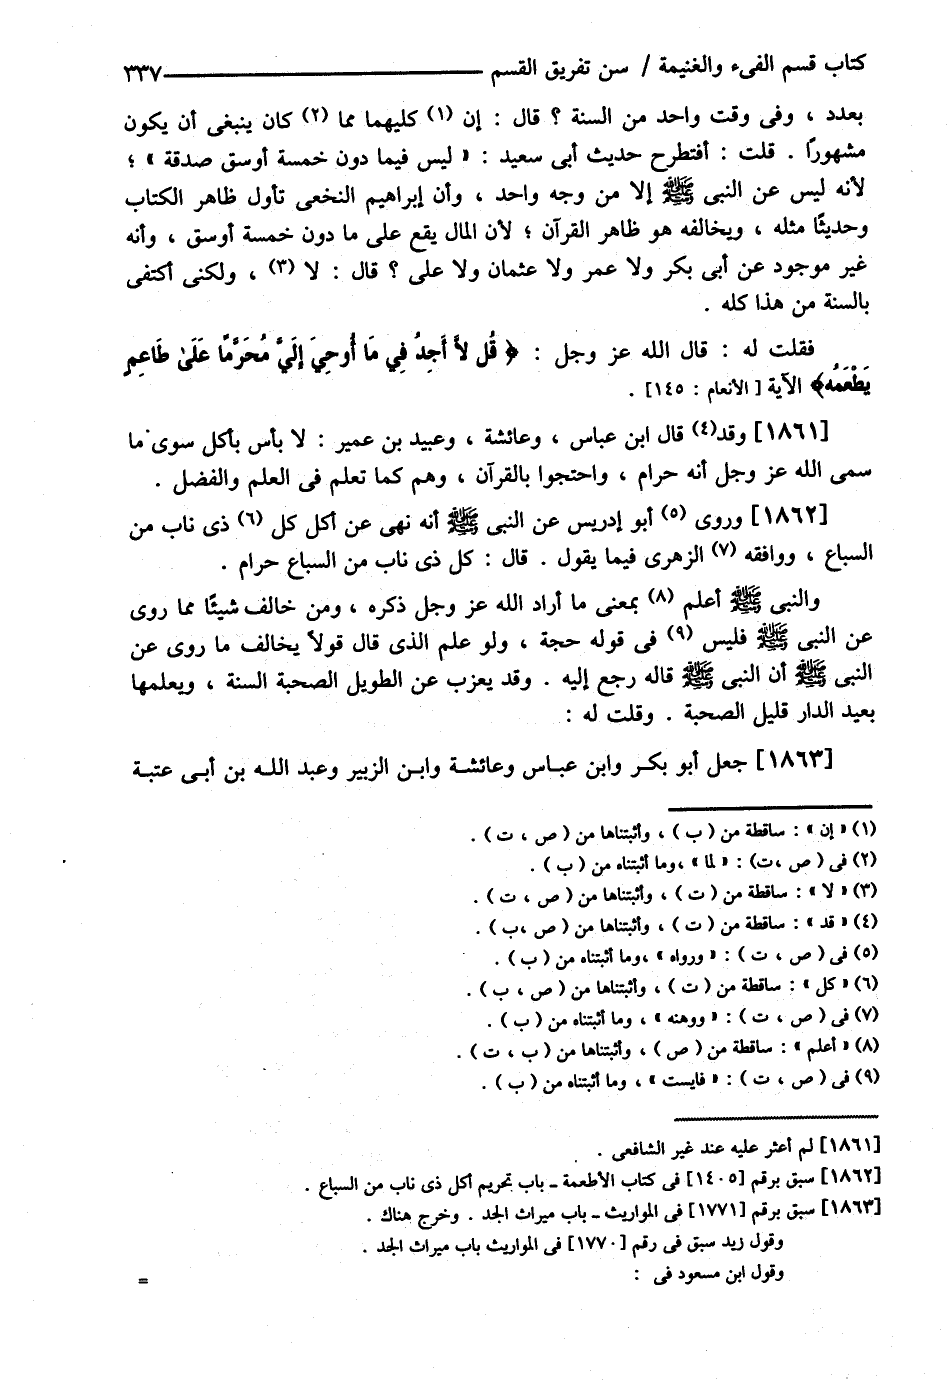 كتاب قسم الفىء والغنيمة / سن تفريق القسم ــــــــــــــــــــــــــــــ ٣٣٧
بعدد ، وفى وقت واحد من السنة ؟ قال : إن (١) كليهما مما (٢) كان ينبغى أن يكون
مشهورًا . قلت : أفتطرح حديث أبى سعيد : « ليس فيما دون خمسة أوسق صدقة » ؛
لأنه ليس عن النبى ﷺ إلا من وجه واحد ، وأن إبراهيم النخعى تأول ظاهر الكتاب
وحديثًا مثله ، ويخالفه هو ظاهر القرآن ؛ لأن المال يقع على ما دون خمسة أوسق ، وأنه
غير موجود عن أبى بكر ولا عمر ولا عثمان ولا على ؟ قال : لا (٣) ، ولكنى أكتفى
بالسنة من هذا كله .
فقلت له : قال الله عز وجل : ﴿ قُل لاَّ أَجِدُ فِي مَا أُوحِيَ إِلَيَّ مُحَرَّمًا عَلَىٰ طَاعِمٍ
يَطْعَمُهُ﴾ الآية [ الأنعام : ١٤٥] .
[١٨٦١] وقد(٤) قال ابن عباس ، وعائشة ، وعبيد بن عمير : لا بأس بأكل سوى ما
سمى الله عز وجل أنه حرام ، واحتجوا بالقرآن ، وهم كما تعلم فى العلم والفضل .
[١٨٦٢] وروى (٥) أبو إدريس عن النبى ﷺ أنه نهى عن أكل كل (٦) ذى ناب من
السباع ، ووافقه (٧) الزهرى فيما يقول . قال : كل ذى ناب من السباع حرام .
والنبى ﷺ أعلم (٨) بمعنى ما أراد الله عز وجل ذكره ، ومن خالف شيئًا مما روى
عن النبى ﷺ فليس (٩) فى قوله حجة ، ولو علم الذى قال قولاً يخالف ما روى عن
النبى ﷺ أن النبى ﷺ قاله رجع إليه . وقد يعزب عن الطويل الصحبة السنة ، ويعلمها
بعيد الدار قليل الصحبة . وقلت له :
[١٨٦٣] جعل أبو بكر وابن عباس وعائشة وابن الزبير وعبد الله بن أبى عتبة
(١) « إن » : ساقطة من ( ب ) ، وأثبتناها من ( ص ، ت ) .
(٢) فى ( ص ،ت) : « لما » ،وما أثبتناه من ( ب ) .
(٣) « لا » : ساقطة من ( ت ) ، وأثبتناها من ( ص ، ت ) .
(٤) « قد » : ساقطة من ( ت ) ، وأثبتناها من ( ص ،ب ) .
(٥) فى ( ص ، ت ) : « ورواه » ،وما أثبتناه من ( ب ) .
(٦) « كل » : ساقطة من ( ت ) ، وأثبتناها من ( ص ، ب ) .
(٧) فى ( ص ، ت ) : « ووهنه » ، وما أثبتناه من ( ب ) .
(٨) « أعلم » : ساقطة من ( ص ) ، وأثبتناها من ( ب ، ت ) .
(٩) فى ( ص ، ت ) : « فايست » ، وما أثبتناه من ( ب ) .
[١٨٦١] لم أعثر عليه عند غير الشافعى .
[١٨٦٢] سبق برقم [١٤٠٥] فى كتاب الأطعمة ـ باب تحريم أكل ذى ناب من السباع .
[١٨٦٣] سبق برقم [١٧٧١] فى المواريث ـ باب ميراث الجد . وخرج هناك .
وقول زيد سبق فى رقم [١٧٧٠] فى المواريث باب ميراث الجد .
وقول ابن مسعود فى :
=